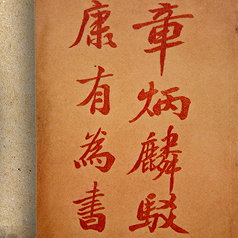 章炳麟駁
康有為書